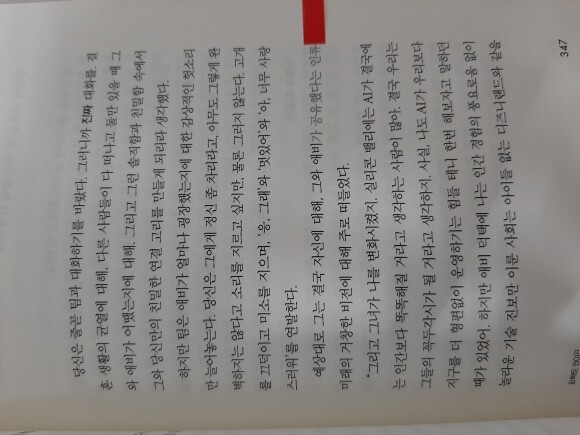 당신은 줄곧 팀과 대화하기를 바랐다. 그러니까 진짜 대화를. 결
혼 생활의 균열에 대해, 다른 사람들이 다 떠나고 둘만 있을 때 그
와 애비가 어땠는지에 대해, 그리고 그런 솔직함과 친밀함 속에서
그와 당신만의 친밀한 연결 고리를 만들게 되리라 생각했다.
하지만 팀은 애비가 얼마나 굉장했는지에 대한 감상적인 헛소리
만 늘어놓는다. 당신은 그에게 정신 좀 차리라고, 아무도 그렇게 완
벽하지는 않다고 소리를 지르고 싶지만, 물론 그러지 않는다. 고개
를 끄덕이고 미소를 지으며, '응, 그래'와 '멋있어'와 '아, 너무 사랑
스러워'를 연발한다.
예상대로 그는 결국 자신에 대해, 그와 애비가 공유했다는 인류
미래의 거창한 비전에 대해 주로 떠들었다.
"그리고 그녀가 나를 변화시켰지. 실리콘 밸리에는 AI가 결국에
는 인간보다 똑똑해질 거라고 생각하는 사람이 많아. 결국 우리는
그들의 꼭두각시가 될 거라고 생각하지. 사실, 나도 AI가 우리보다
지구를 더 형편없이 운영하기는 힘들 테니 한번 해보자고 말하던
때가 있었어. 하지만 애비 덕택에 나는 인간 경험의 풍요로움 없이
놀라운 기술 진보만 이룬 사회는 아이들 없는 디즈니랜드와 같을
347